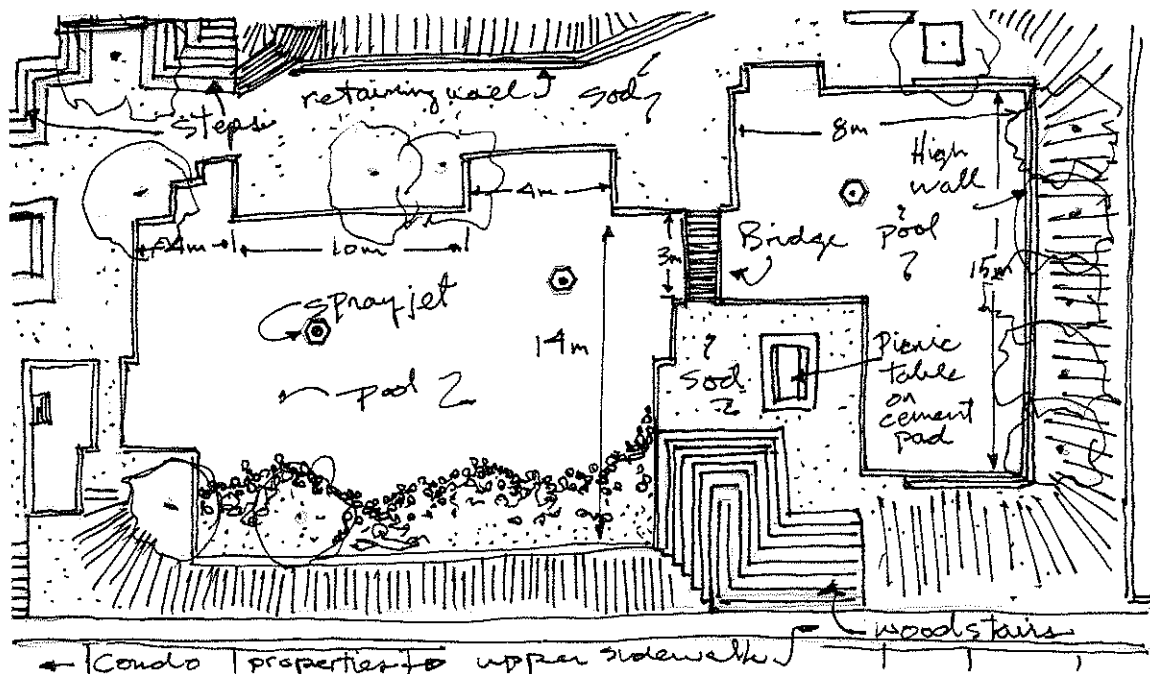 retaining wall
sod
steps
8m
High
wall
4m
4m
10m
3m
Bridge
pool
15m
spray jet
14m
pool
sod
Picnic
table
on
cement
pad
wood stairs
condo properties upper sidewalk